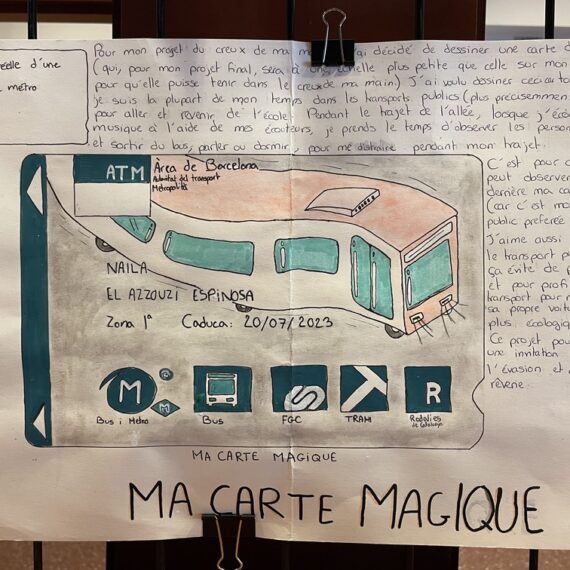 Pour mon projet du creux de ma m j'ai décidé de dessiner une carte d
(qui, pour mon projet final, sera à une échelle plus petite que celle sur mon
pour qu'elle puisse tenir dans le creux de ma main) J'ai voulu dessiner ceci car to
je suis la plupart de mon temps dans les transports publics (plus précisemmen
pour aller et revenir de l'école. Pendant le trajet de l'allée, lorsque j'éco
musique à l'aide de mes écouteurs, je prends le temps d'observer les person
et sortir du bus, parler ou dormir, pour me distraire pendant mon trajet.
éelle d'une
métro
C'est pour c
peut observer
dernière ma ca
(car c'est mo
public préférée
J'aime aussi
le transport p
ça évite de p
et pour profi
transport pour
sa propre voitu
plus écologiqu
Ce projet pou
une invitation
l'évasion et
rêverie
ATM Àrea de Barcelona
Autoritat del transport
Metropolità
NAILA
EL AZZOUZI ESPINOSA
Zona 1ª Caduca: 20/07/2023
M M R
Bus i Metro Bus FGC TRAM Rodalies
de Catalunya
MA CARTE MAGIQUE
MA CARTE MAGIQUE